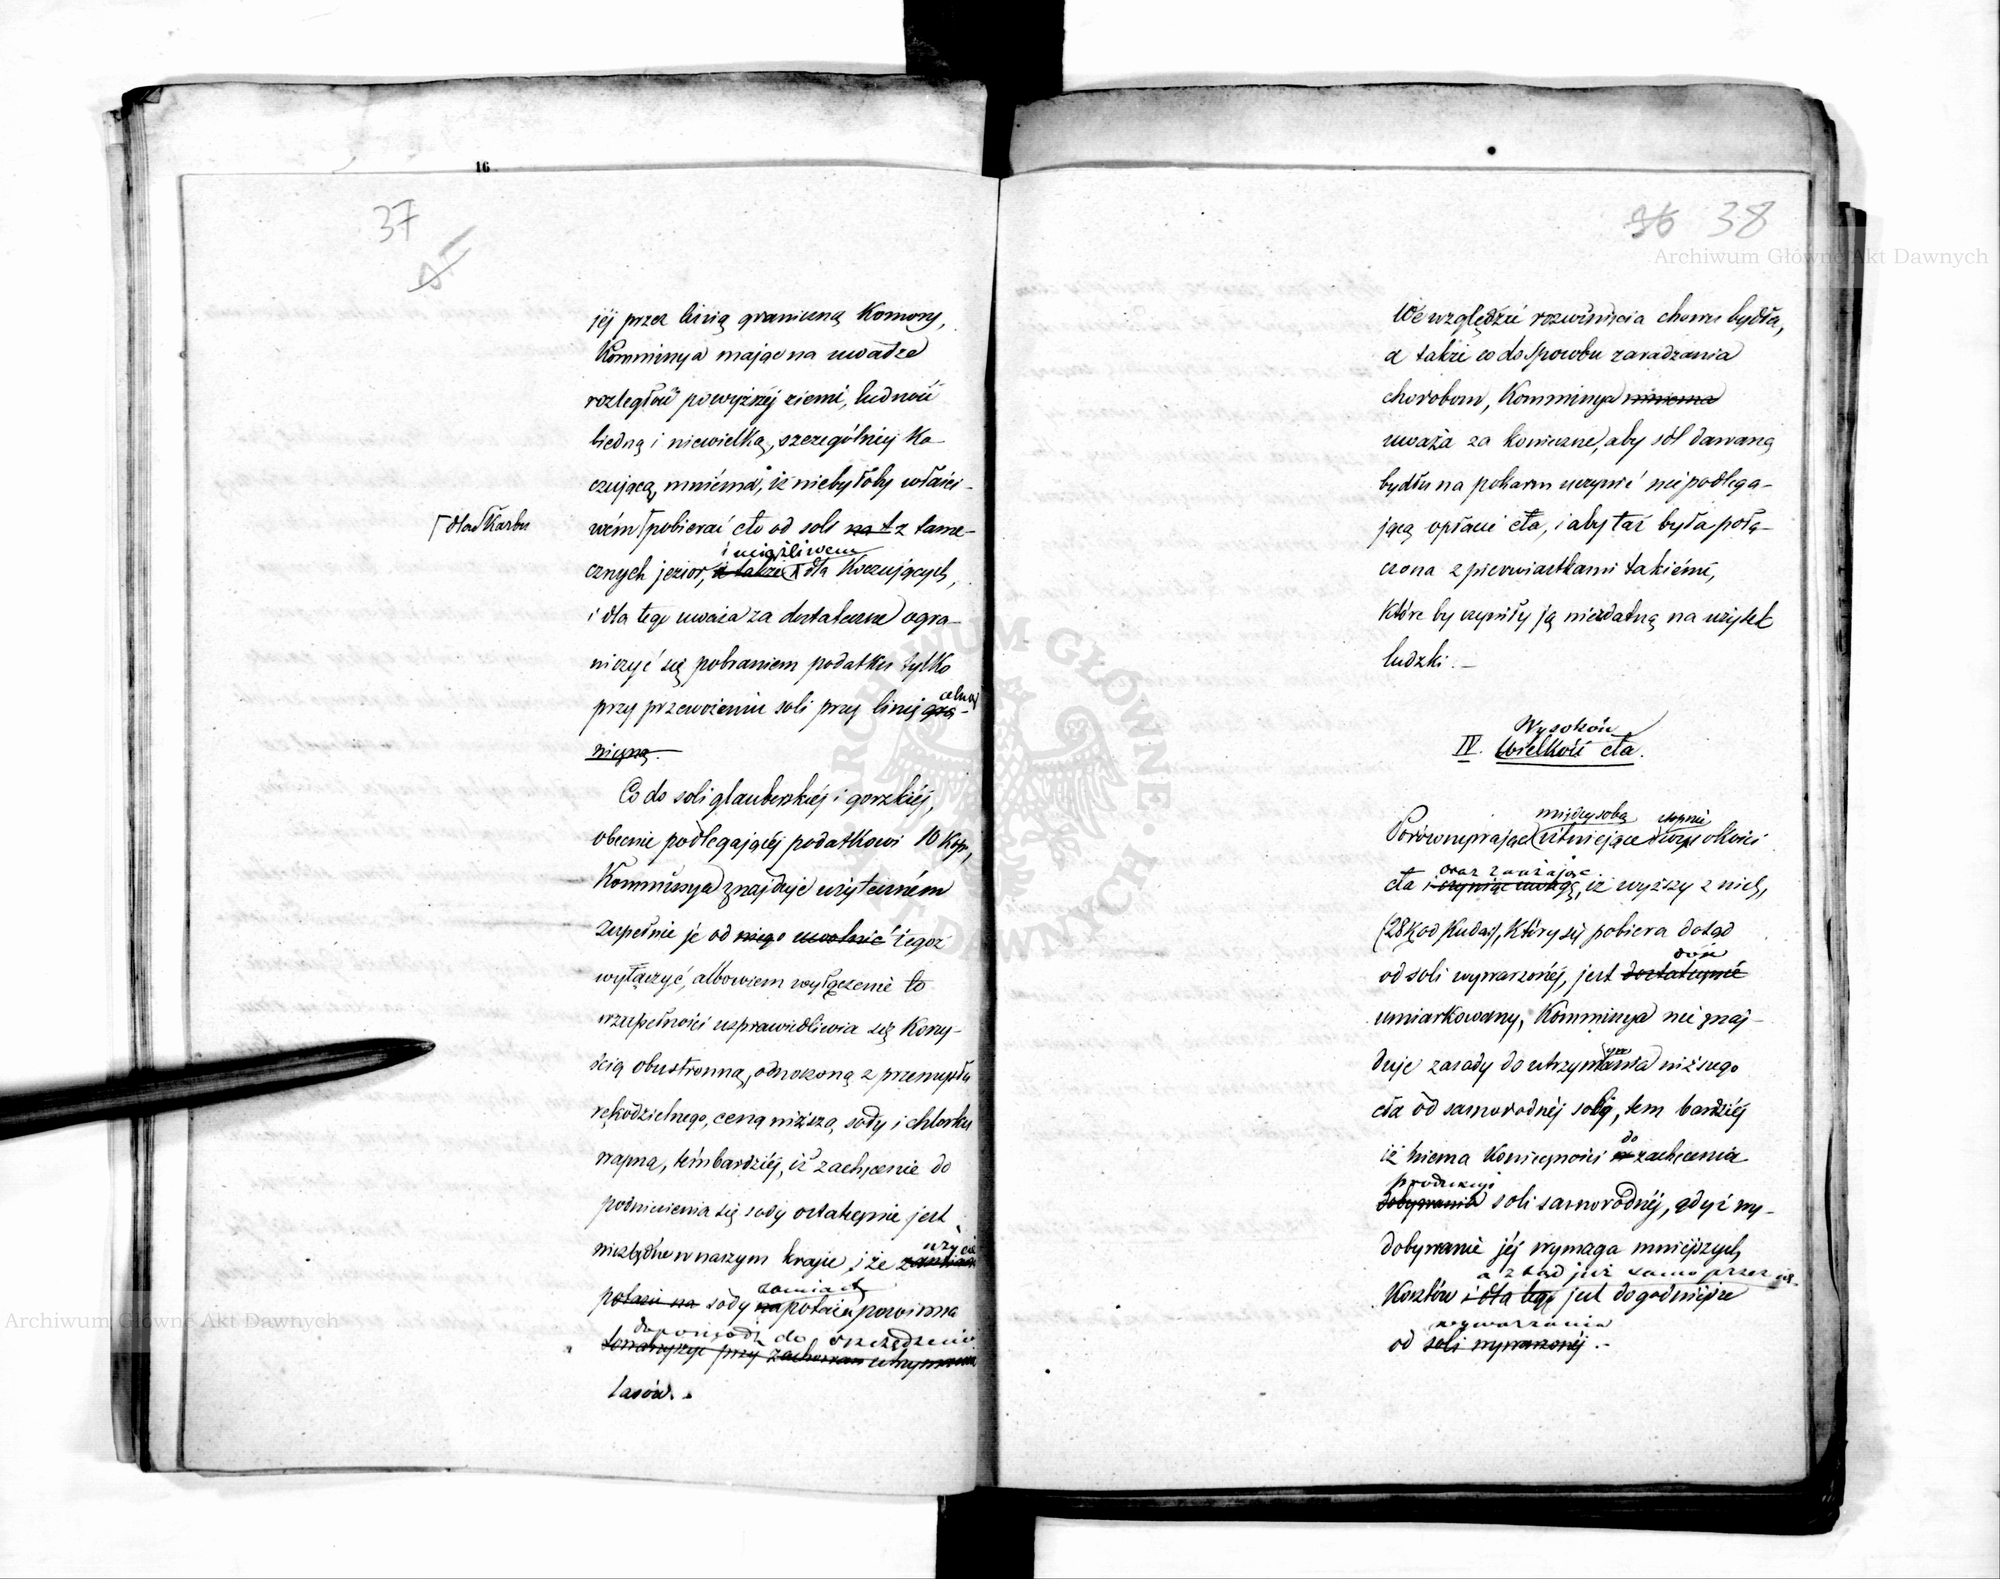 16
37
jéj przez linią graniczną Komory,
Kommissya mając na uwadze
rozległość powyższéj ziemi, ludność
biedną i niewielką, szczególniéj Ko-
czującą, mniéma, iż niebyłoby właści-
wém pobierać cło od soli na t z tame-
dla Skarbu
i uciążliwem
cznych jezior, a także dla Koczujących,
i dla tego uważa za dostateczne ogra-
niczyć się pobraniem podatku tylko
przy przewożeniu soli przez linię gra-
celną
niczną.
Co do soli glauberskiéj i gorzkiéj,
obecnie podlegającéj podatkowi 10 Kop,
Kommissya znajduje użyteczném
zupełnie je od niego uwolnić tegoż
wyłączyć, albowiem wyłączenie to
w zupełności usprawiedliwia się Korzy-
ścią obustronną, odnoszoną z przemysłu
rękodzielnego, ceną niższą sody i chlorku
wapna, témbardziéj, iż zachęcenie do
podniesienia się sody ostatecznie jest
niezbędne w naszym kraju, i że
użycie
zamiast
potażu na sody na potażu powinno
doprowadzić do oszczędzenia
towarzyszyć przy zachowan utrzymaniu
lasów.
38
We względzie rozwinięcia chowu bydła,
a także co do sposobu zaradzania
chorobom, Kommissya mniema
uważa za konieczne, aby sól dawaną
bydłu na pokarm uczynić nie podlega-
jącą opłacie cła, i aby taż była połą-
czona z pierwiastkami takiémi,
które by uczyniły ją niezdatną na użytek
ludzki. —
Wysokość
IV. Wielkość cła.
między sobą stopnie
Porównywając istniejące wysokości
oraz zważając
cła i czyniąc uwagę, iż wyższy z nich,
(28 K od puda), który się pobiera dotąd
dość
od soli wywarzonéj, jest dostatecznie
umiarkowany, Kommissya nie znaj-
duje zasady do utrzymania niższego
cła od samorodnéj soli, tem bardziéj
do
iż niema Konieczności w zachęcenia
produkcyi
dobywania soli samorodnéj, gdyż wy-
dobywanie jéj wymaga mniejszych
a ztąd już samo przez się
Kosztów i dla tego jest dogodniejsze
wywarzania
od soli wywarzonéj.-
Archiwum Główne Akt Dawnych
Archiwum Główne Akt Dawnych
ARCHIWUM GŁÓWNE AKT DAWNYCH